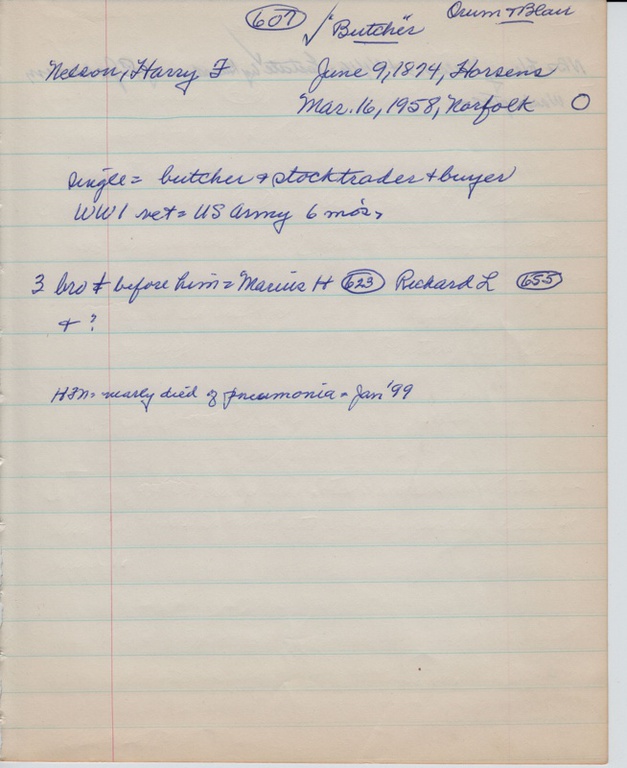 607 ✓ "Butcher" Orum + Blair
Nelson, Harry F June 9, 1874, Horsens
Mar. 16, 1958, Norfolk O
single = butcher + stocktrader + buyer
WW1 vet = US Army 6 mos.
3 bro ‡ before him = Marius H 623 Richard L 655
+ ?
HFN = nearly died of pneumonia - Jan '99